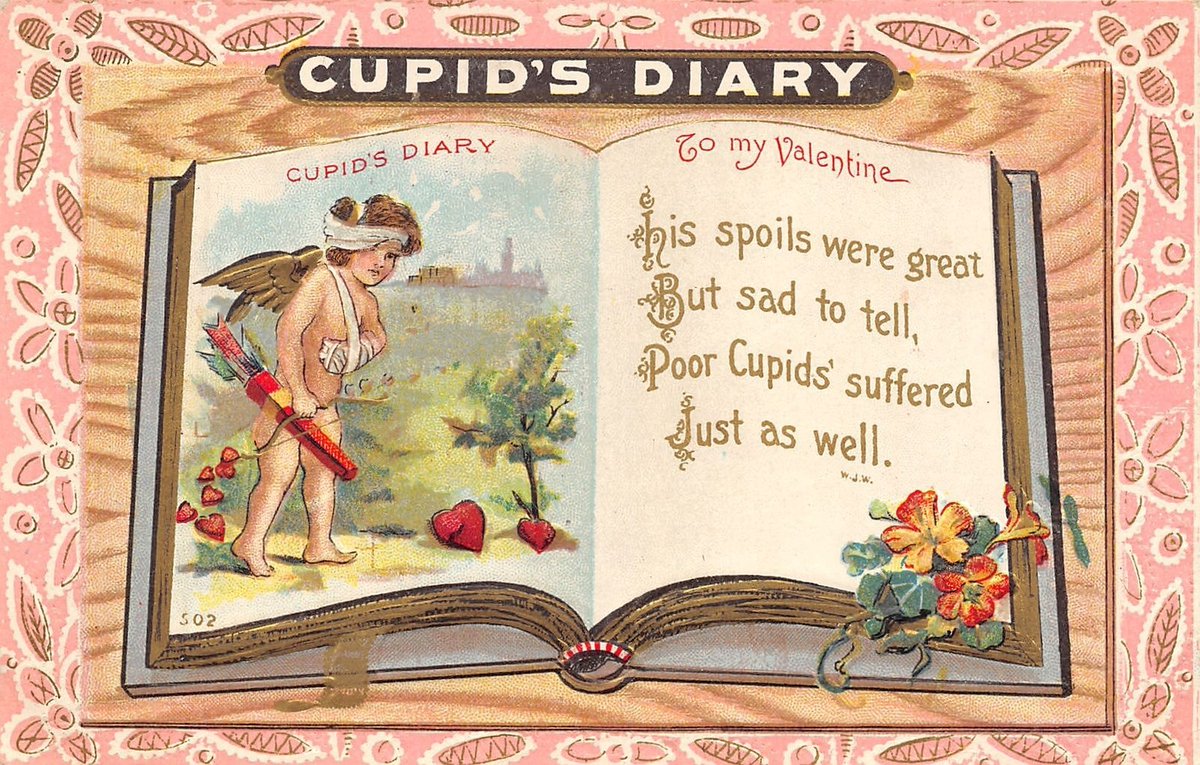 CUPID'S DIARY
CUPID'S DIARY
To my Valentine
His spoils were great
But sad to tell,
Poor Cupids' suffered
Just as well.
W.J.W.
502